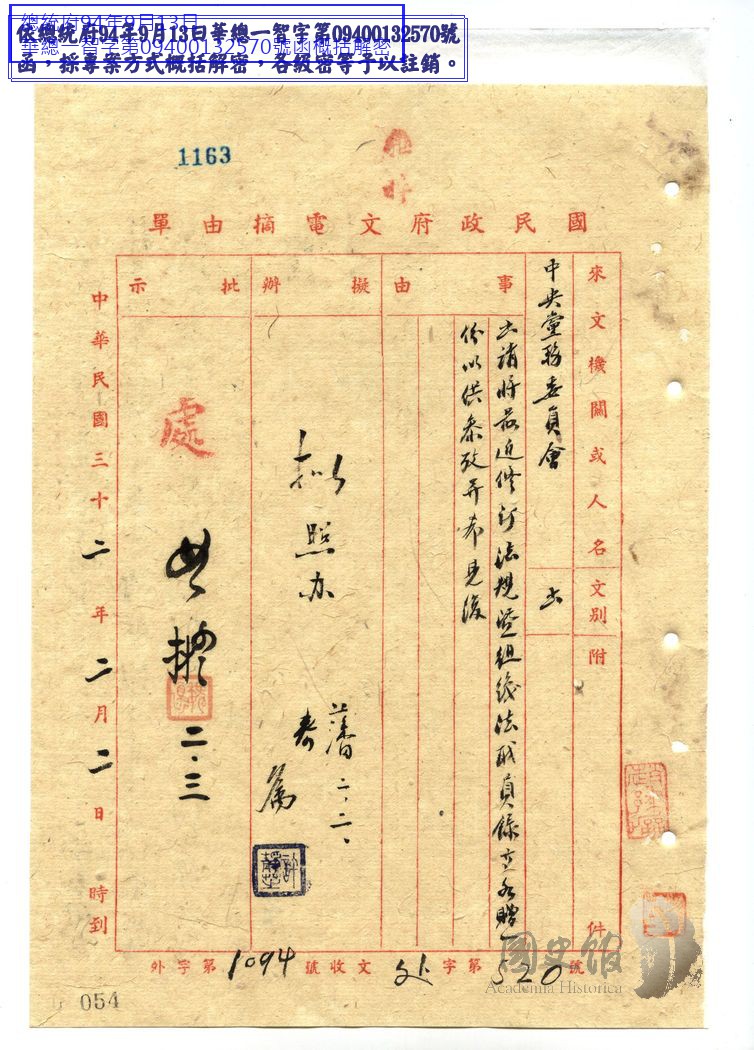 總統府94年9月13日
華總一智字第09400132570號函概括解密
依總統府94年9月13日華總一智字第09400132570號
函，採專案方式概括解密，各級密等予以註銷。
1163
國民政府文電摘由單
來文機關或人名
文別
附件
中央黨務委員會
事由
份以供參攷并希見復
擬辦
擬照办
二、二、
批示
處
二、三
中華民國三十二年二月二日時到
外字第1094號
收文外字第520號
國史館
Academia Historica
054